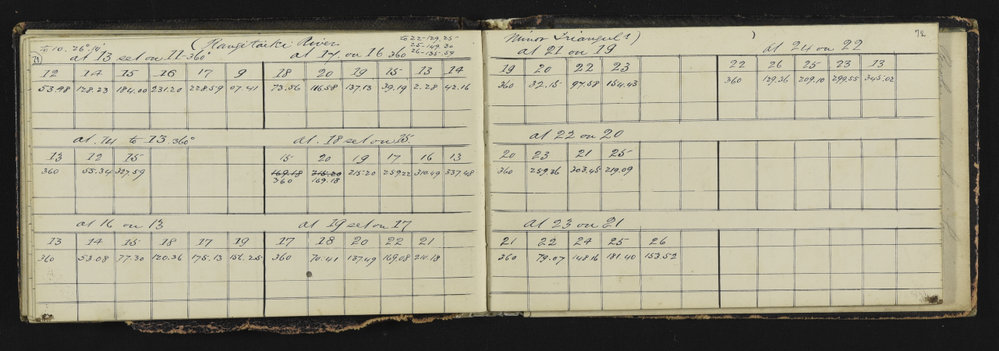 (Rangitaiki River
to 22-129.25
25-149.20
26-135.59
at 13 set on 11 360°
at 17 on 16 360
12 14 15 16 17 9 18 20 19 15 13 14
53.48 128.23 184.00 231.20 228.59 07.41 73.56 116.58 137.13 39.19 2.28 42.16
at 14 to 13 360°
at 18 set on 15
13 12 15 15 20 19 17 16 13
360 55.34 327.59 169.18 215.20 215.20 259.22 310.49 337.48
360 169.18
at 16 on 13
at 19 set on 17
13 14 15 18 17 19 17 18 20 22 21
360 53.08 77.30 120.36 175.13 156.25 360 70.41 137.49 169.08 211.18
Minor Triangul n)
72
at 21 on 19
at 24 on 22
19 20 22 23 22 26 25 23 13
360 32.15 97.58 154.43 360 129.36 209.10 299.55 345.02
at 22 on 20
20 23 21 25
360 259.26 303.45 219.09
at 23 on 21
21 22 24 25 26
360 79.07 148.16 181.40 153.52